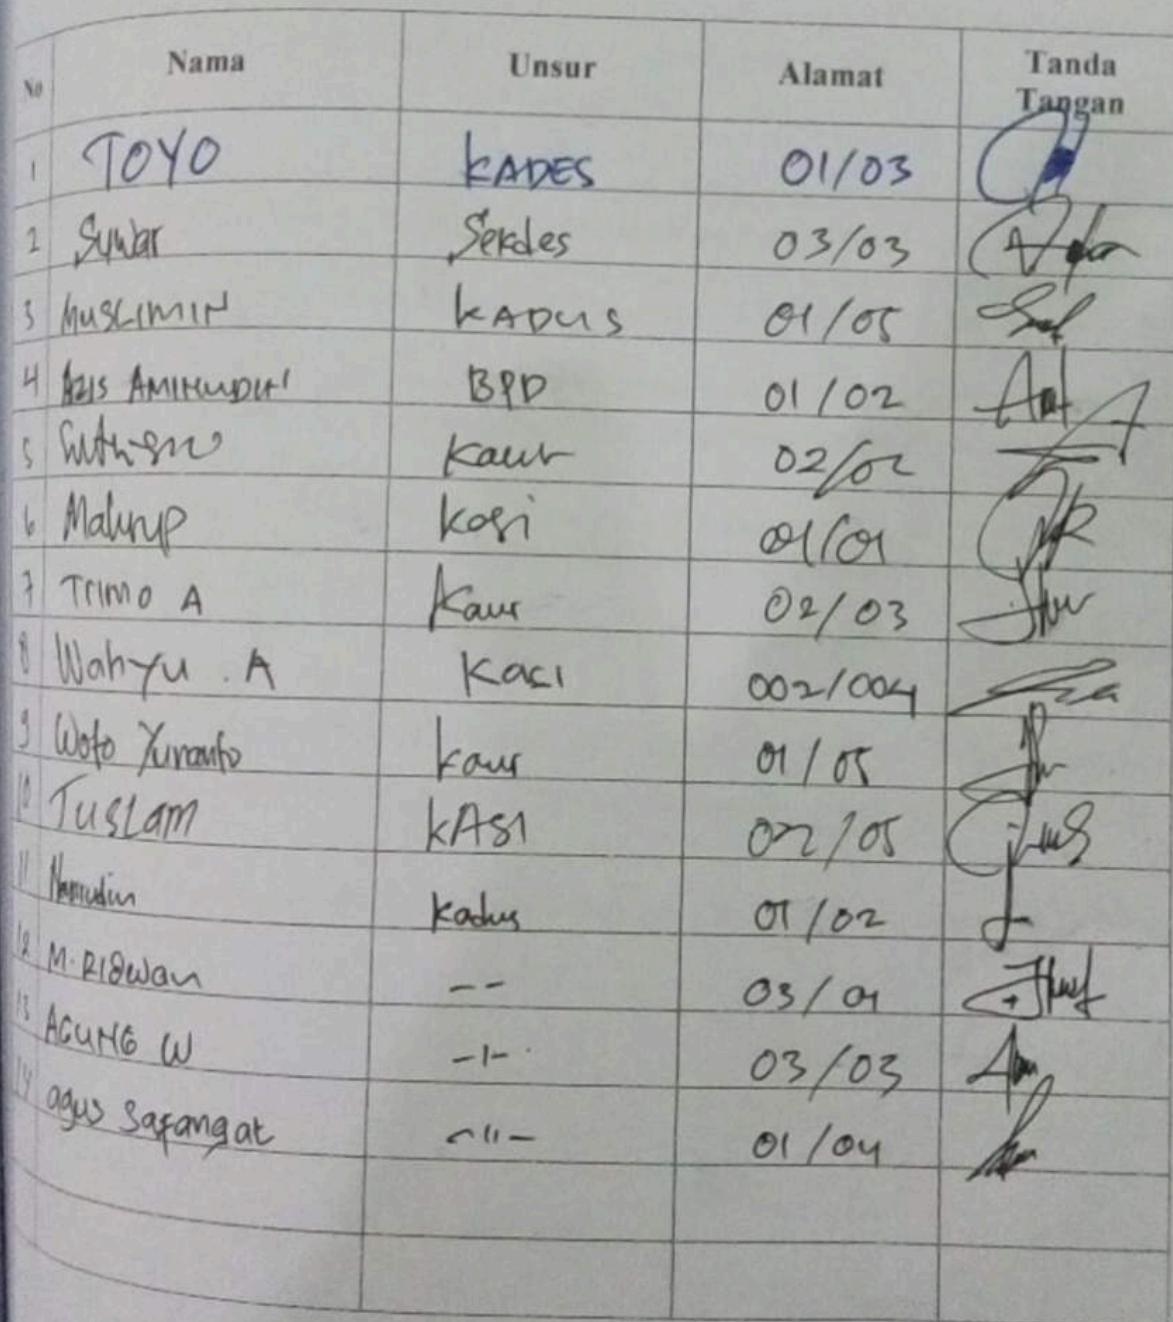 No Nama Unsur Alamat Tanda Tangan
1 TOYO KADES 01/03
2 Sywar Sekdes 03/03
3 MUSLIMIN KADUS 01/05
4 AZIS AMINUDIN BPD 01/02
5 Kaur 02/02
6 Makrup Kasi 01/01
7 Trimo A Kaur 02/03
8 Wahyu . A Kasi 002/004
9 Woto Yuranto Kaur 01/05
10 TUSLAM KASI 02/05
11 Kadus 01/02
12 M. Ridwan -- 03/01
13 AGUNG W -1- 03/03
14 agus Safangat -11- 01/04